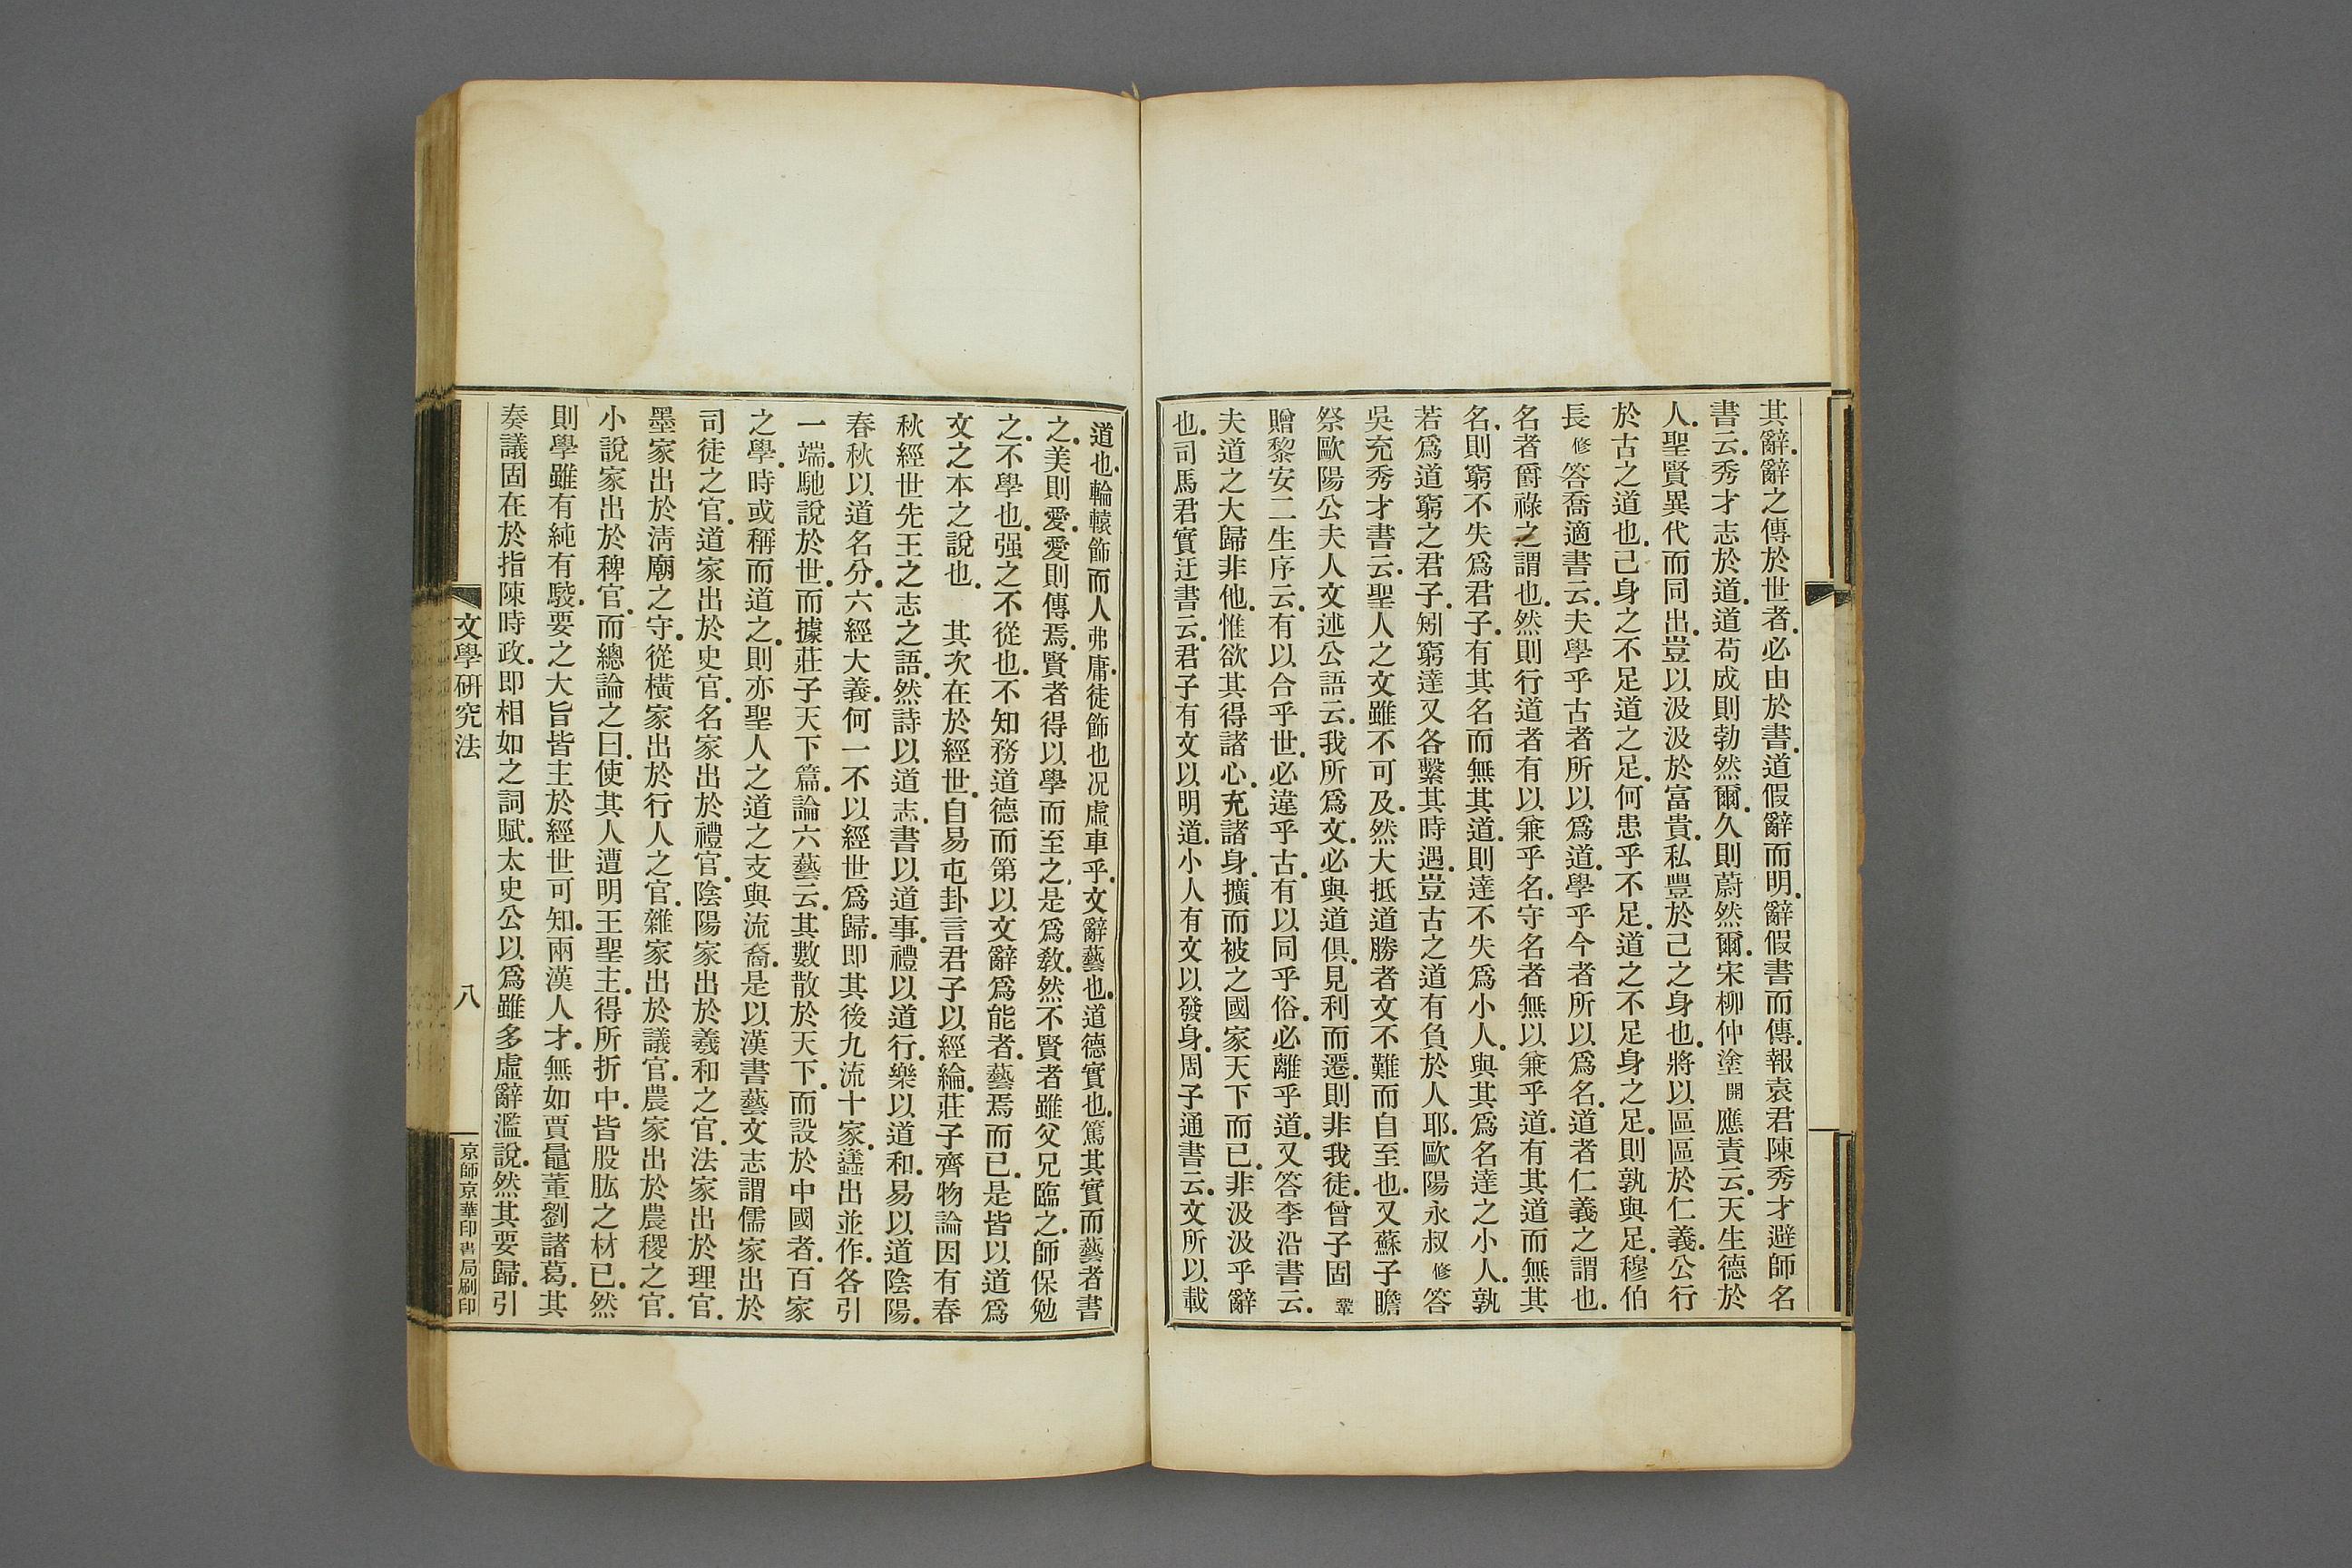 其辭。辭之傳於世者。必由於書。道假辭而明。辭假書而傳。報袁君陳秀才避師名
書云。秀才志於道。道苟成則勃然爾。久則蔚然爾。宋柳仲塗開應責云。天生德於
人。聖賢異代而同出。豈以汲汲於富貴。私豐於己之身也。將以區區於仁義。公行
於古之道也。己身之不足道之足。何患乎不足。道之不足身之足。則孰與足。穆伯
長修答喬適書云。夫學乎古者所以爲道。學乎今者所以爲名。道者仁義之謂也。
名者爵祿之謂也。然則行道者有以兼乎名。守名者無以兼乎道。有其道而無其
名。則窮不失爲君子。有其名而無其道。則達不失爲小人。與其爲名達之小人。孰
若爲道窮之君子。矧窮達又各繫其時遇。豈古之道有負於人耶。歐陽永叔修答
吳充秀才書云。聖人之文雖不可及。然大抵道勝者文不難而自至也。又蘇子瞻
祭歐陽公夫人文述公語云。我所爲文。必與道俱。見利而遷。則非我徒。曾子固鞏
贈黎安二生序云。有以合乎世。必違乎古。有以同乎俗。必離乎道。又答李沿書云。
夫道之大歸非他。惟欲其得諸心。充諸身。擴而被之國家天下而已。非汲汲乎辭
也。司馬君實迂書云。君子有文以明道。小人有文以發身。周子通書云。文所以載
道也。輪轅飾而人弗庸。徒飾也况虛車乎。文辭藝也。道德實也。篤其實而藝者書
之。美則愛。愛則傳焉。賢者得以學而至之。是爲敎。然不賢者雖父兄臨之。師保勉
之。不學也。强之不從也。不知務道德而第以文辭爲能者。藝焉而已。是皆以道爲
文之本之說也。　其次在於經世。自易屯卦言君子以經綸。莊子齊物論因有春
秋經世先王之志之語。然詩以道志。書以道事。禮以道行。樂以道和。易以道陰陽。
春秋以道名分。六經大義。何一不以經世爲歸。即其後九流十家。蠭出並作。各引
一端。馳說於世。而據莊子天下篇。論六藝云。其數散於天下。而設於中國者。百家
之學。時或稱而道之。則亦聖人之道之支與流裔。是以漢書藝文志謂儒家出於
司徒之官。道家出於史官。名家出於禮官。陰陽家出於羲和之官。法家出於理官。
墨家出於淸廟之守。從橫家出於行人之官。雜家出於議官。農家出於農稷之官。
小說家出於稗官。而總論之曰。使其人遭明王聖主。得所折中。皆股肱之材已。然
則學雖有純有駁。要之大旨皆主於經世可知。兩漢人才。無如賈鼂董劉諸葛。其
奏議固在於指陳時政。即相如之詞賦。太史公以爲雖多虛辭濫說。然其要歸。引
文學研究法　八　京師京華印書局刷印